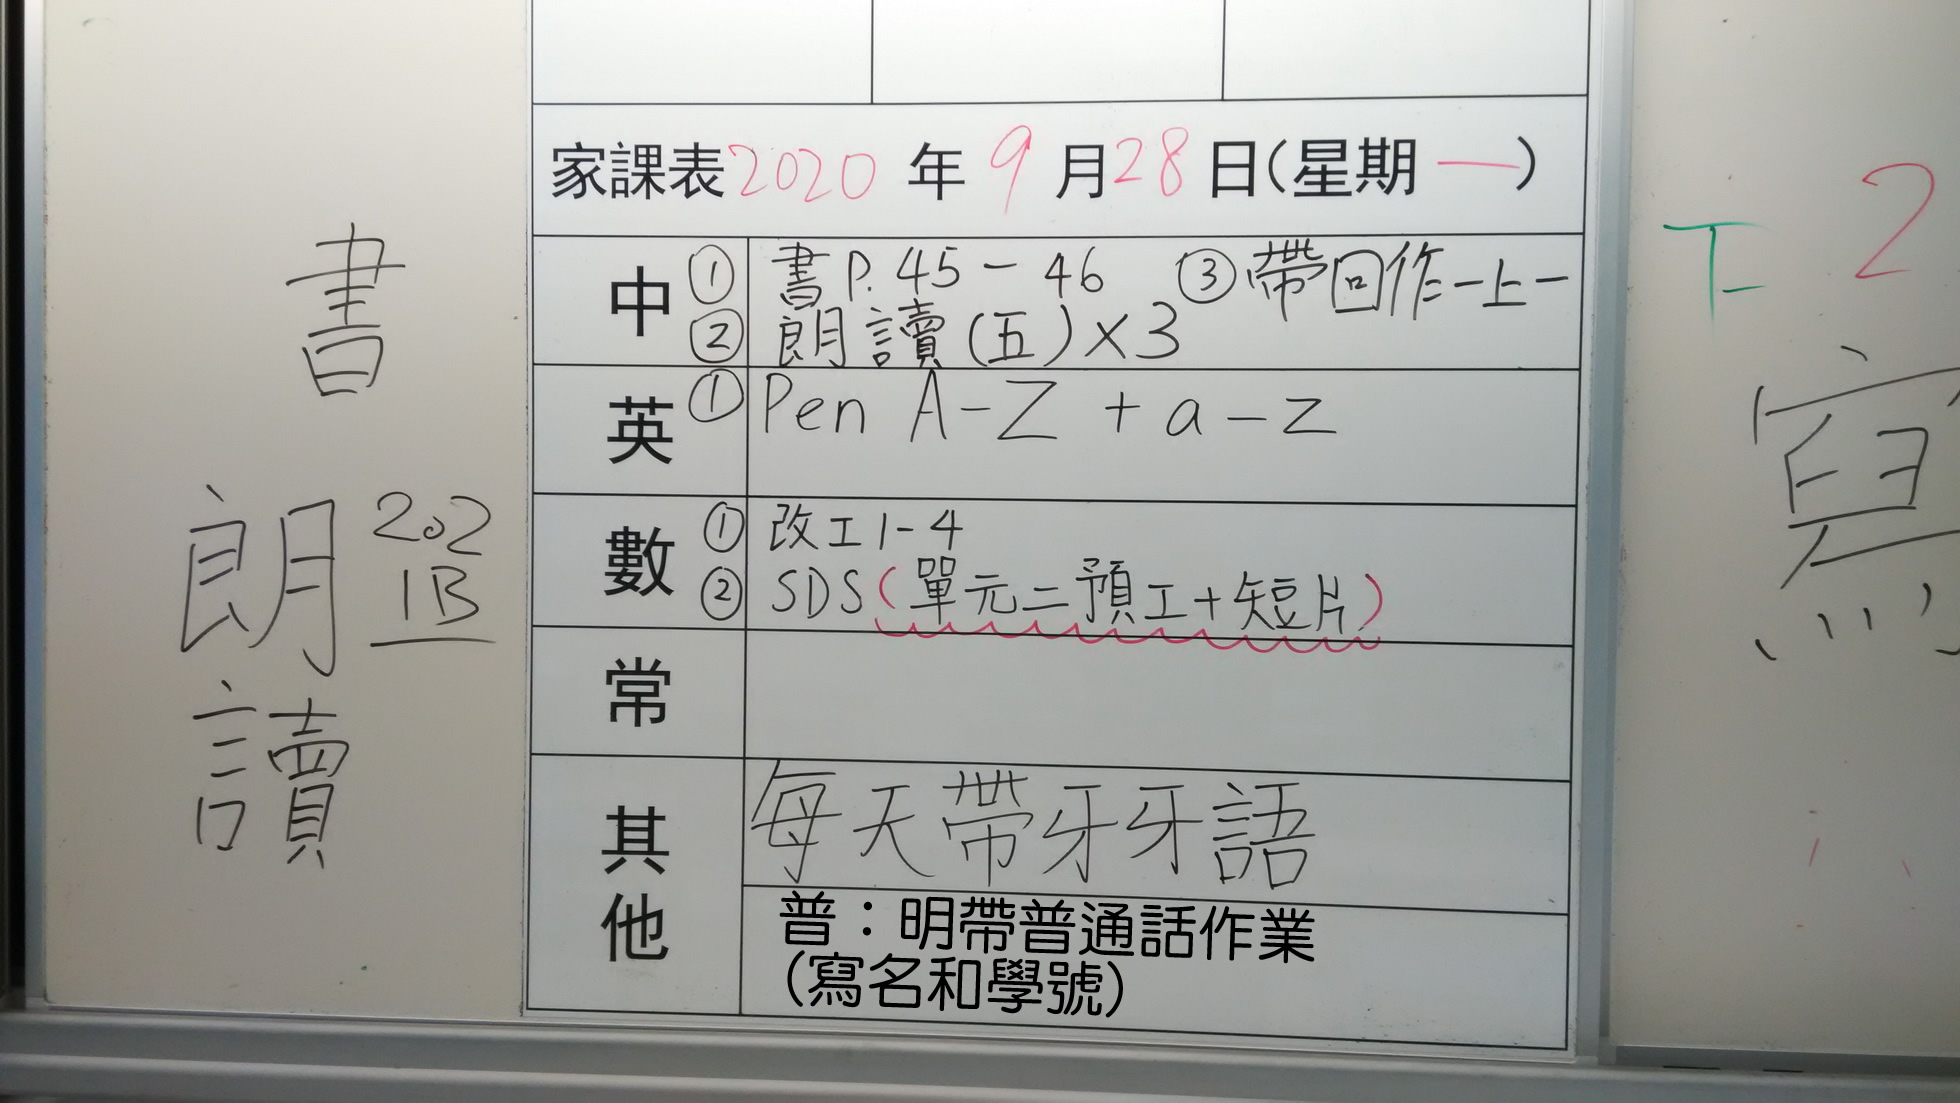 書
朗
讀
202
1B
家課表2020年9月28日(星期一)
中 ① 書P.45-46 ③帶回作一上一
② 朗讀(五)×3
英 ① Pen A-Z + a-z
數 ① 改工1-4
② SDS(單元二預工+短片)
常
其他 每天帶牙牙語
普：明帶普通話作業
(寫名和學號)
2
寫